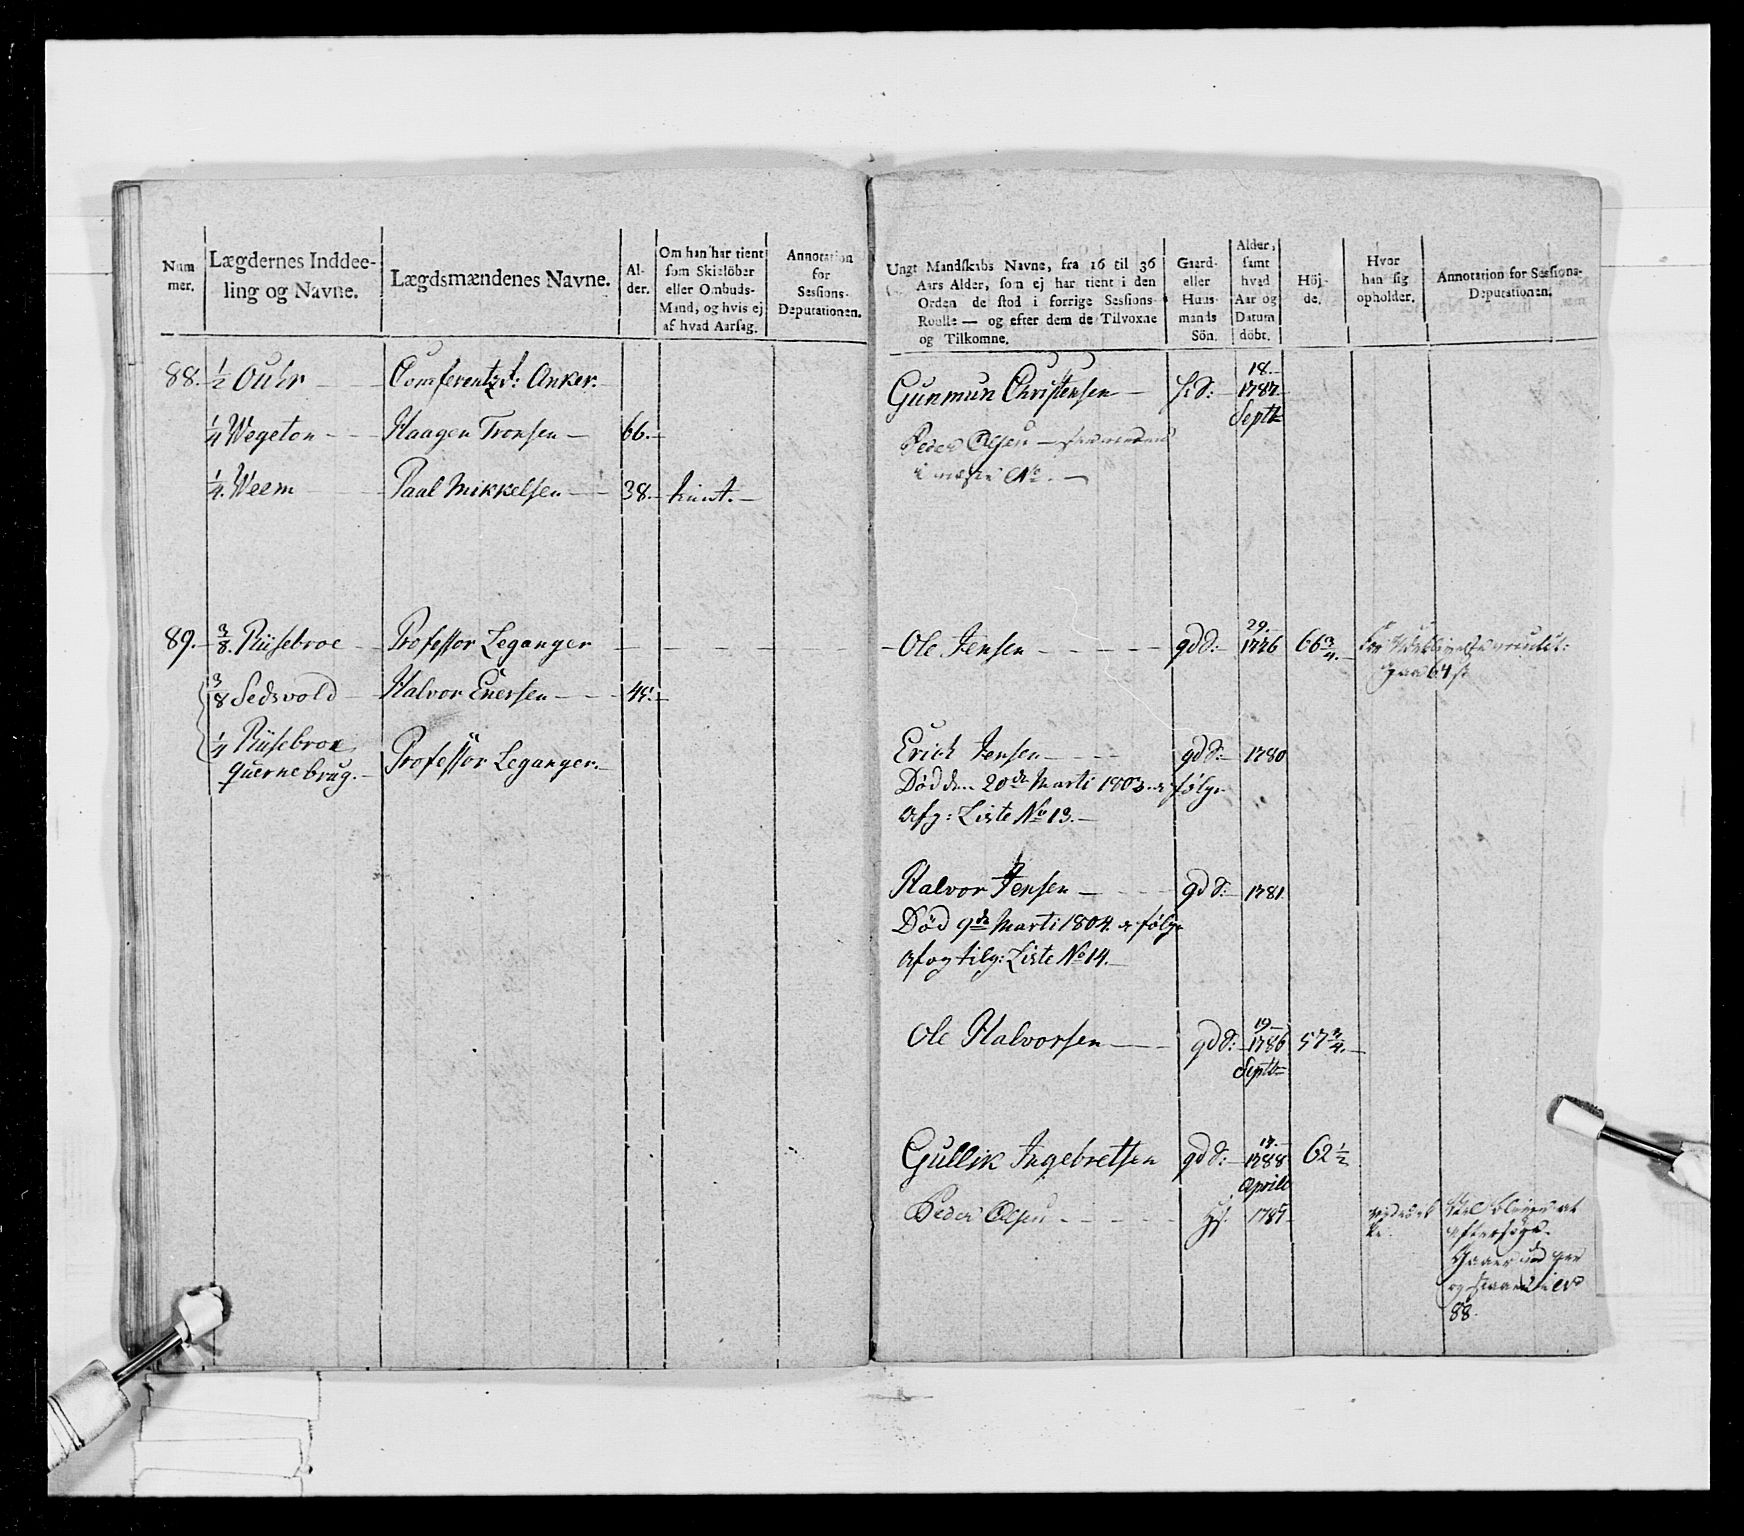 Num
mer.
Lægdernes Inddee-
ling og Navne.
Lægdsmændenes Navne.
Al-
der.
Om han har tient
som Skieløber
eller Ombuds-
Mand, og hvis ej
af hvad Aarsag.
Annotation
for
Sessions-
Deputationen.
88. 1/2 Ouhr Conferentzr: Anker.
1/4 Wegeton Haagen Tronsen 66.
1/4. Weem Paal Mikkelsen 38. tient.
89. 3/8. Riisebroe Professor Leganger
3/8 Sedsvold Halvor Enersen 45.
1/4 Riisebroe
quernebrug. Professor Leganger.
Ungt Mandskabs Navne, fra 16 til 36
Aars Alder, som ej har tient i den
Orden de stod i forrige Sessions-
Roulle — og efter dem de Tilvoxne
og Tilkomne.
Gaard-
eller
Huus-
mands
Sön.
Alder,
samt
hvad
Aar og
Datum
döbt.
Höj-
de.
Hvor
han sig
opholder.
Annotation for Sessions-
Deputationen.
18.
Gunmun Christensen 1787
Septbr
Peder Olsen
No.
29.
Ole Jensen gd S: 1776 66 3/4.
Erich Jensen gd S: 1780
Død den 20de Marti 1803 følge
Afg: Liste No 13.
Halvor Jensen gd S: 1781
Død 9de Marti 1804. følge
Af og tilg: Liste No 14.
19
Ole Halvorsen gd S: 1786 57 3/4.
Septbr
Gullik Ingebretsen gd S: 1788 62 1/2
Aprili
Peder Olsen
88.